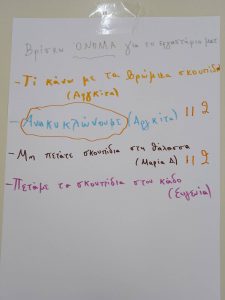 Βρίσκω ΟΝΟΜΑ για το εργαστήριο μας
- Τι κάνω με τα βρώμικα σκουπίδια
(Αργκίτα)
- Ανακυκλώνουμε (Αργκίτα) 11 2
- Μη πετάτε σκουπίδια στη θάλασσα
(Μαρία Δ) 11 2
- Πετάμε τα σκουπίδια στον κάδο
(Ευγενία)